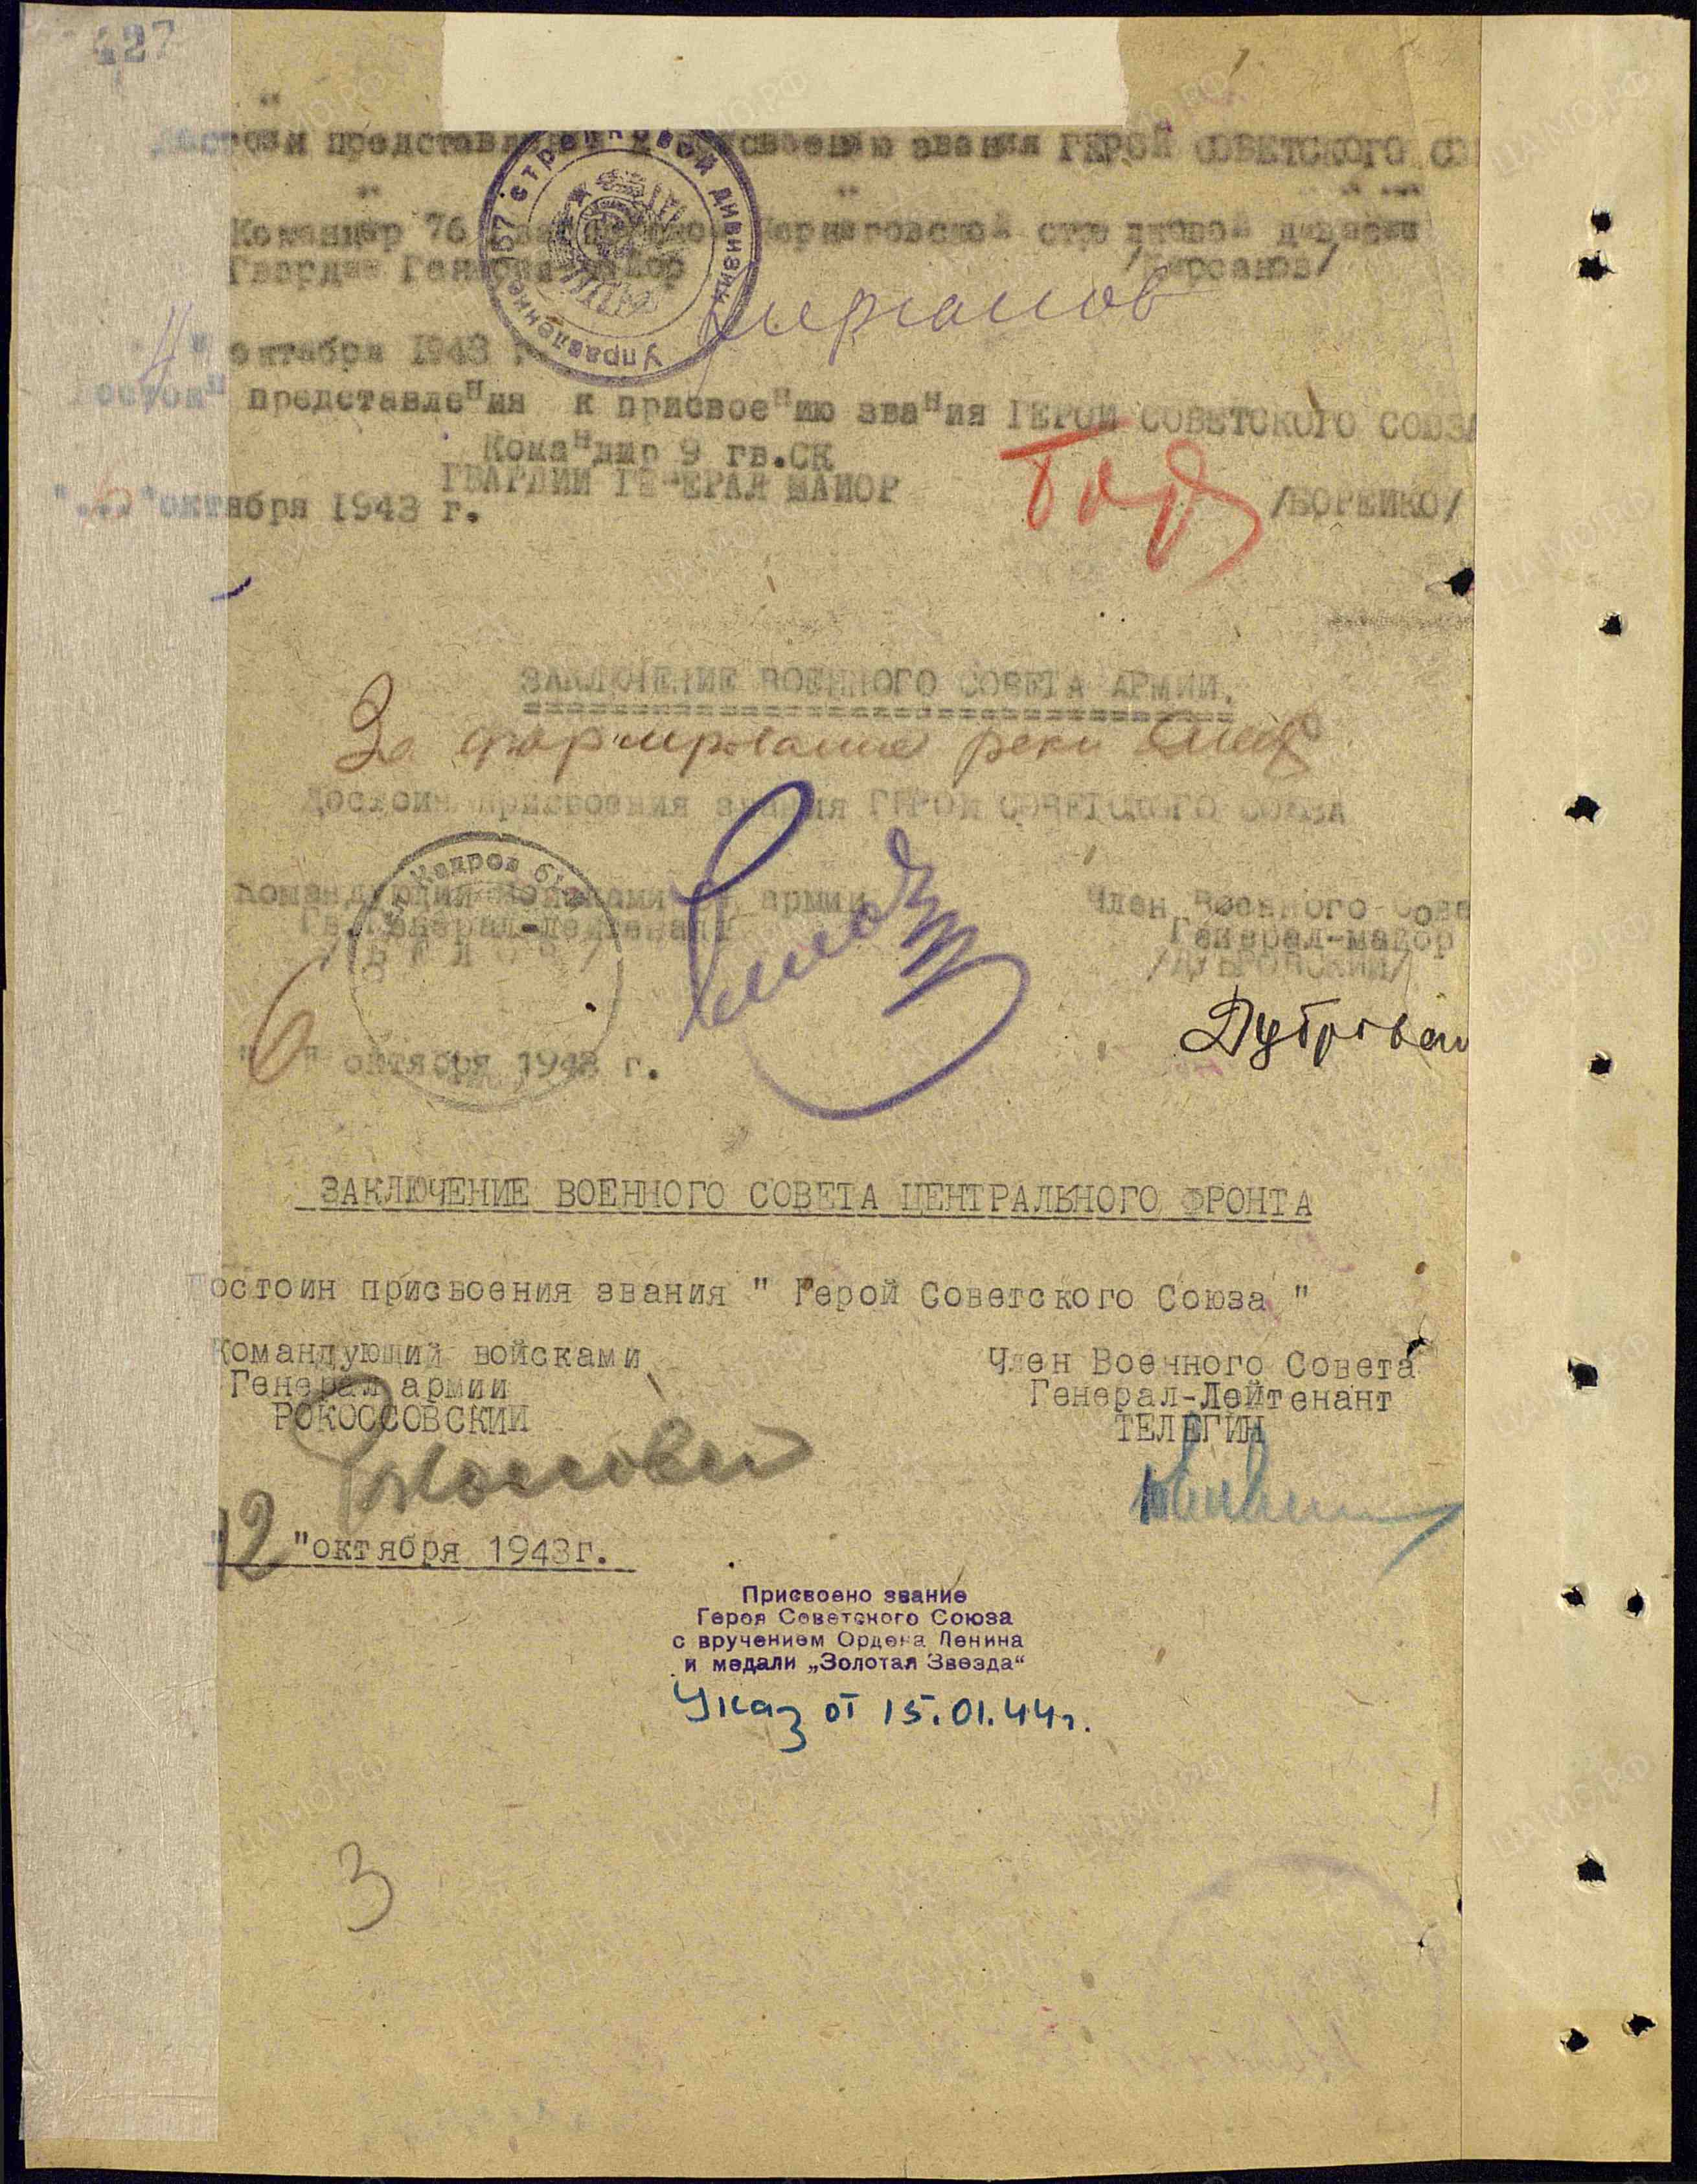 427
Достоин представления к присвоению звания ГЕРОЙ СОВЕТСКОГО СО
Командир 76 Гвардейской Черниговской стрелковой дивизии
Гвардии Генерал-майор /Кирсанов/
Управление 157 стрелковой дивизии
Кирсанов
4 " октября 1943 г.
остоин представления к присвоению звания ГЕРОЙ СОВЕТСКОГО СОЮЗА
Командир 9 гв.СК
ГВАРДИИ ГЕНЕРАЛ МАЙОР /БОРЕЙКО/
" 6 "октября 1943 г.
ЗАКЛЮЧЕНИЕ ВОЕННОГО СОВЕТА АРМИИ.
За форсирование реки Днепр
Достоин присвоения звания ГЕРОЙ СОВЕТСКОГО СОЮЗА
Кадров 61
Командующий войсками армии Член Военного Сове
Гв.Генерал-лейтенант Генерал-майор
/БЕЛОВ/ /ДУБРОВСКИЙ/
Дубровский
" 6 " октября 1943 г.
ЗАКЛЮЧЕНИЕ ВОЕННОГО СОВЕТА ЦЕНТРАЛЬНОГО ФРОНТА
Достоин присвоения звания " Герой Советского Союза "
Командующий войсками Член Военного Совета
Генерал армии Генерал-Лейтенант
РОКОССОВСКИЙ ТЕЛЕГИН
Рокоссовский
"12 "октября 1943г.
Присвоено звание
Героя Советского Союза
с вручением Ордена Ленина
и медали „Золотая Звезда“
Указ от 15.01.44г.
3